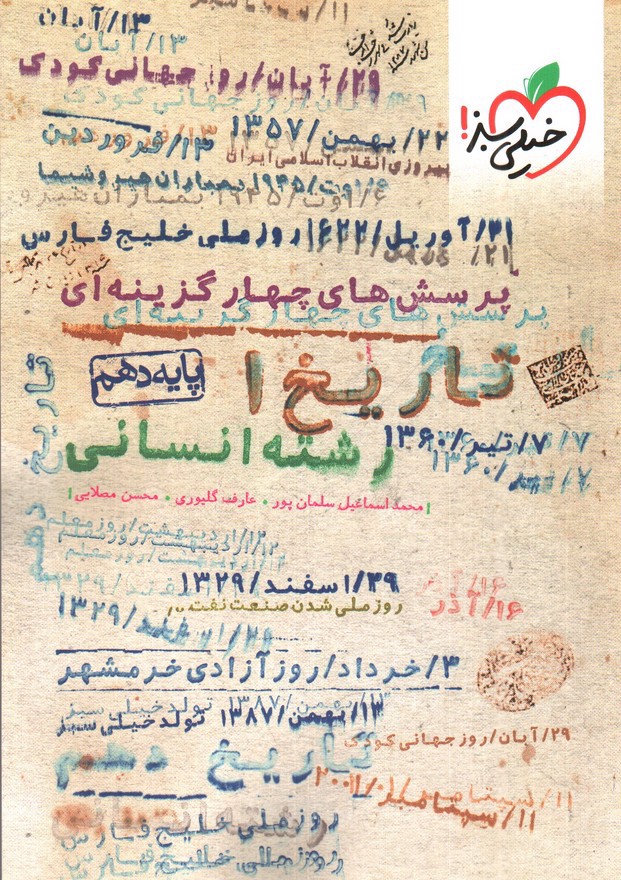 ۱۱/سپتامبر
۱۳/آبان
۱۳/آبان
۲۹/آبان/روز جهانی کودک
۲۹/آبان/روز جهانی کودک
خیلی سبز!
۲۲/بهمن/۱۳۵۷
۱۳/فروردین
پیروزی انقلاب اسلامی ایران
۶/اوت/۱۹۴۵ بمباران هیروشیما
۶/اوت/۱۹۴۵ بمباران هیرو
۳۱/آوریل/۱۶۲۲ روز ملی خلیج فارس
پرسش های چهار گزینه ای
پرسش های چهار گزینه ای
تاریخ ۱
پایه دهم
۷/تیر/۱۳۶۰
۷/تیر/۱۳۶۰
رشته انسانی
محمد اسماعیل سلمان پور • عارفه گلیوری • محسن مصلایی
تاریخ دهم
۱۲/اردیبهشت/روز معلم
۱۲/اردیبهشت/روز معلم
۱۲/اردیبهشت/روز معلم
۲۹/اسفند/۱۳۲۹
روز ملی شدن صنعت نفت
۱۶/آذر
۱۶/آذر
۲۹/اسفند/۱۳۲۹
۳/خرداد/روز آزادی خرمشهر
۱۳/بهمن/۱۳۸۷ تولد خیلی سبز
۱۳/بهمن/۱۳۸۷ تولد خیلی سبز
۲۹/آبان/روز جهانی کودک
تاریخ دهم
۱۱/سپتامبر/۲۰۰۱
۱۱/سپتامبر
رشته انسانی
روز ملی خلیج فارس
روز ملی خلیج فارس